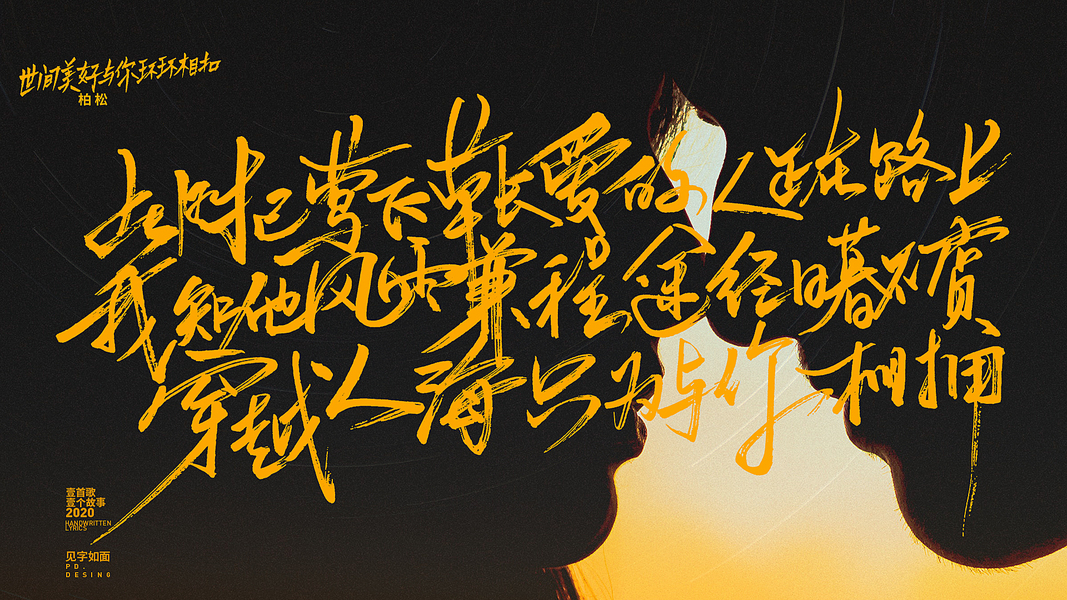 世间美好与你环环相扣
柏松
此时已莺飞草长爱的人正在路上
我知他风雨兼程途经日暮不赏
穿越人海只为与你相拥
壹首歌
壹个故事
2020
HANDWRITTEN
LYRICS
见字如面
PD.
DESING